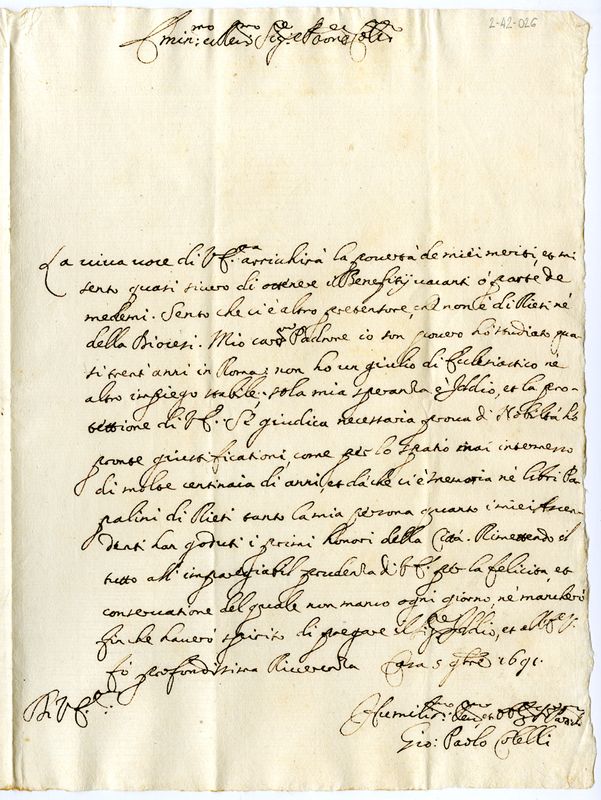 2-42-026
Emin:mo e Rev:mo Sig:re e Padrone Col:mo
La viva voce di V.E.za arrichirà la povertà de miei meriti, et mi
sento quasi sicuro di ottenere il Beneficij vacanti ò parte de
medemi. Sento che ci è altro pretensore, che non è di Rieti nè
della Diocesi. Mio caro Padrone io son povero hò studiato qua-
si trent'anni in Roma; non ho un giulio di Ecclesiastico nè
altro impiego stabile; sola mia speranza è Iddio, et la pro-
tettione di V.E. Se giudica necessaria prova di Nobiltà ho
pronte giustificationi, come per lo spatio mai intermesso
di molte centinaia di anni, et da che ci è memoria nè libri Pa-
palini di Rieti tanto la mia persona quanto i miei Ascen-
denti han goduti i primi honori della Città. Rimettendo il
tutto all'impareggiabil prudenza di V.E. per la felicità, et
conservatione del quale non manco ogni giorno, nè mancherò
finche haverò spirito di pregare il Sig:re Iddio, et all'E.V.
fò profondissima Riverenza Casa 5 9bre 1691.
Di V.E.
Humiliss:mo Dev:mo et
Gio: Paolo Colelli